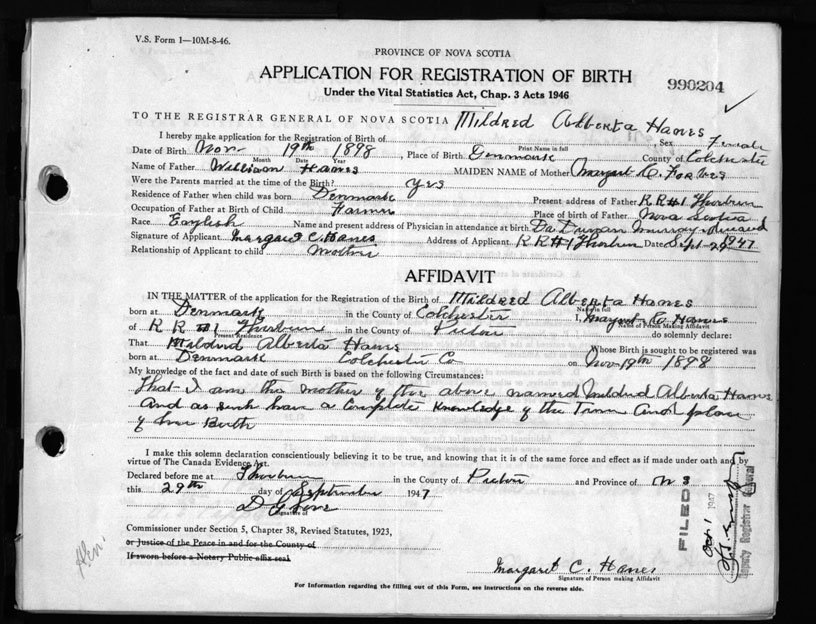 V.S. Form 1—10M-8-46.
PROVINCE OF NOVA SCOTIA
APPLICATION FOR REGISTRATION OF BIRTH
990204
Under the Vital Statistics Act, Chap. 3 Acts 1946
TO THE REGISTRAR GENERAL OF NOVA SCOTIA Mildred Alberta Hanes
I hereby make application for the Registration of Birth of Print Name in full Sex Female
Date of Birth Nov 19th 1898, Place of Birth Denmark County of Colchester
Month Date Year
Name of Father William Hanes MAIDEN NAME of Mother Margaret C. Forbes
Were the Parents married at the time of the Birth? Yes
Residence of Father when child was born Denmark Present address of Father R R #1 Thorburn
Occupation of Father at Birth of Child Farmer Place of birth of Father Nova Scotia
Race English Name and present address of Physician in attendance at birth Dr. Duncan Murray
Signature of Applicant Margaret C. Hanes Address of Applicant R R #1 Thorburn Date Sept - 29 1947
Relationship of Applicant to child Mother
AFFIDAVIT
IN THE MATTER of the application for the Registration of the Birth of Mildred Alberta Hanes
Name in full
born at Denmark in the County of Colchester I, Margaret C. Hanes
Name of Person Making Affidavit
of R R #1 Thorburn in the County of Pictou do solemnly declare:
Present Residence
That Mildred Alberta Hanes Whose Birth is sought to be registered was
born at Denmark Colchester Co on Nov 19th 1898
My knowledge of the fact and date of such Birth is based on the following Circumstances:
That I am the mother of the above named Mildred Alberta Hanes
And as such have a Complete Knowledge of the Time And place
of her Birth
I make this solemn declaration conscientiously believing it to be true, and knowing that it is of the same force and effect as if made under oath and by
virtue of The Canada Evidence Act.
Declared before me at Thorburn in the County of Pictou and Province of N S
this 29th day of September 1947
Signature of
Commissioner under Section 5, Chapter 38, Revised Statutes, 1923,
or Justice of the Peace in and for the County of
If sworn before a Notary Public affix seal
FILED Oct 1 1947
Deputy Registrar General
Margaret C. Hanes
Signature of Person making Affidavit
For Information regarding the filling out of this Form, see instructions on the reverse side.